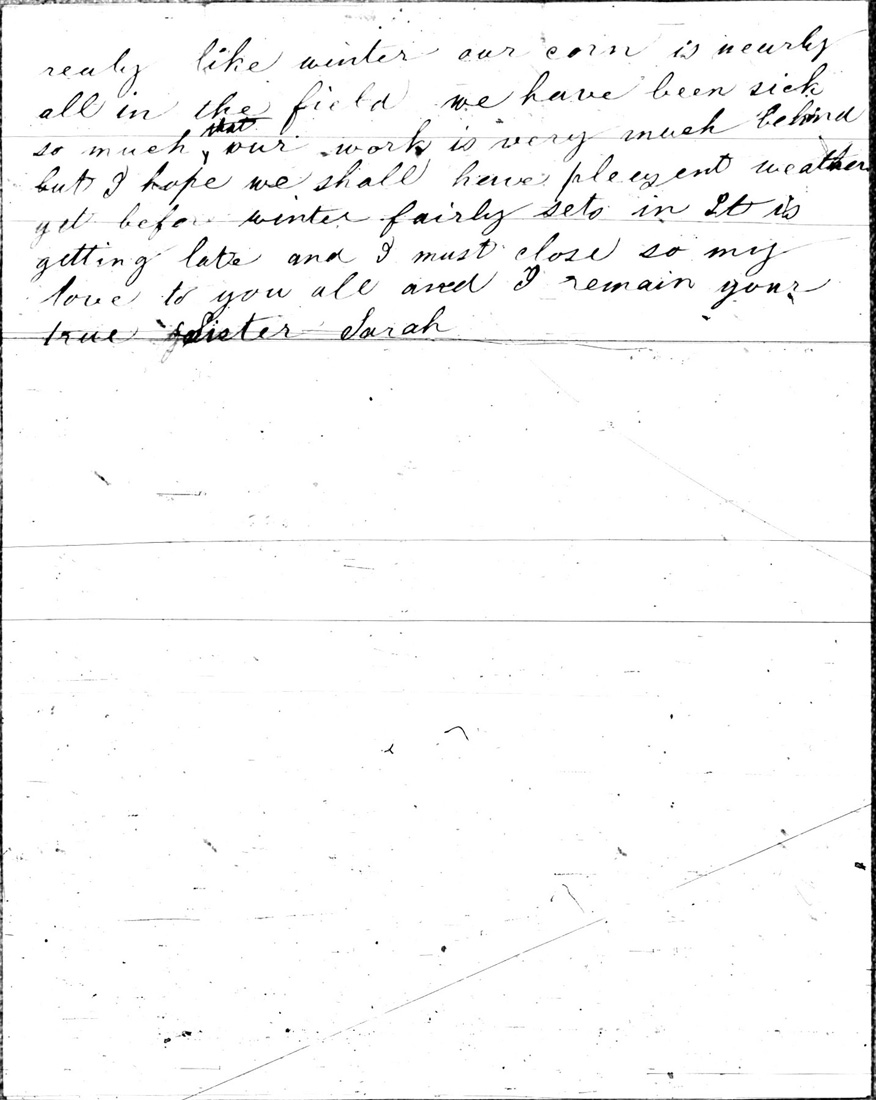 realy like winter our corn is nearly
all in the field we have been sick
so much that our work is very much behind
but I hope we shall have pleasent weather
yet before winter fairly sets in It is
getting late and I must close so my
love to you all and I remain your
true Sister Sarah